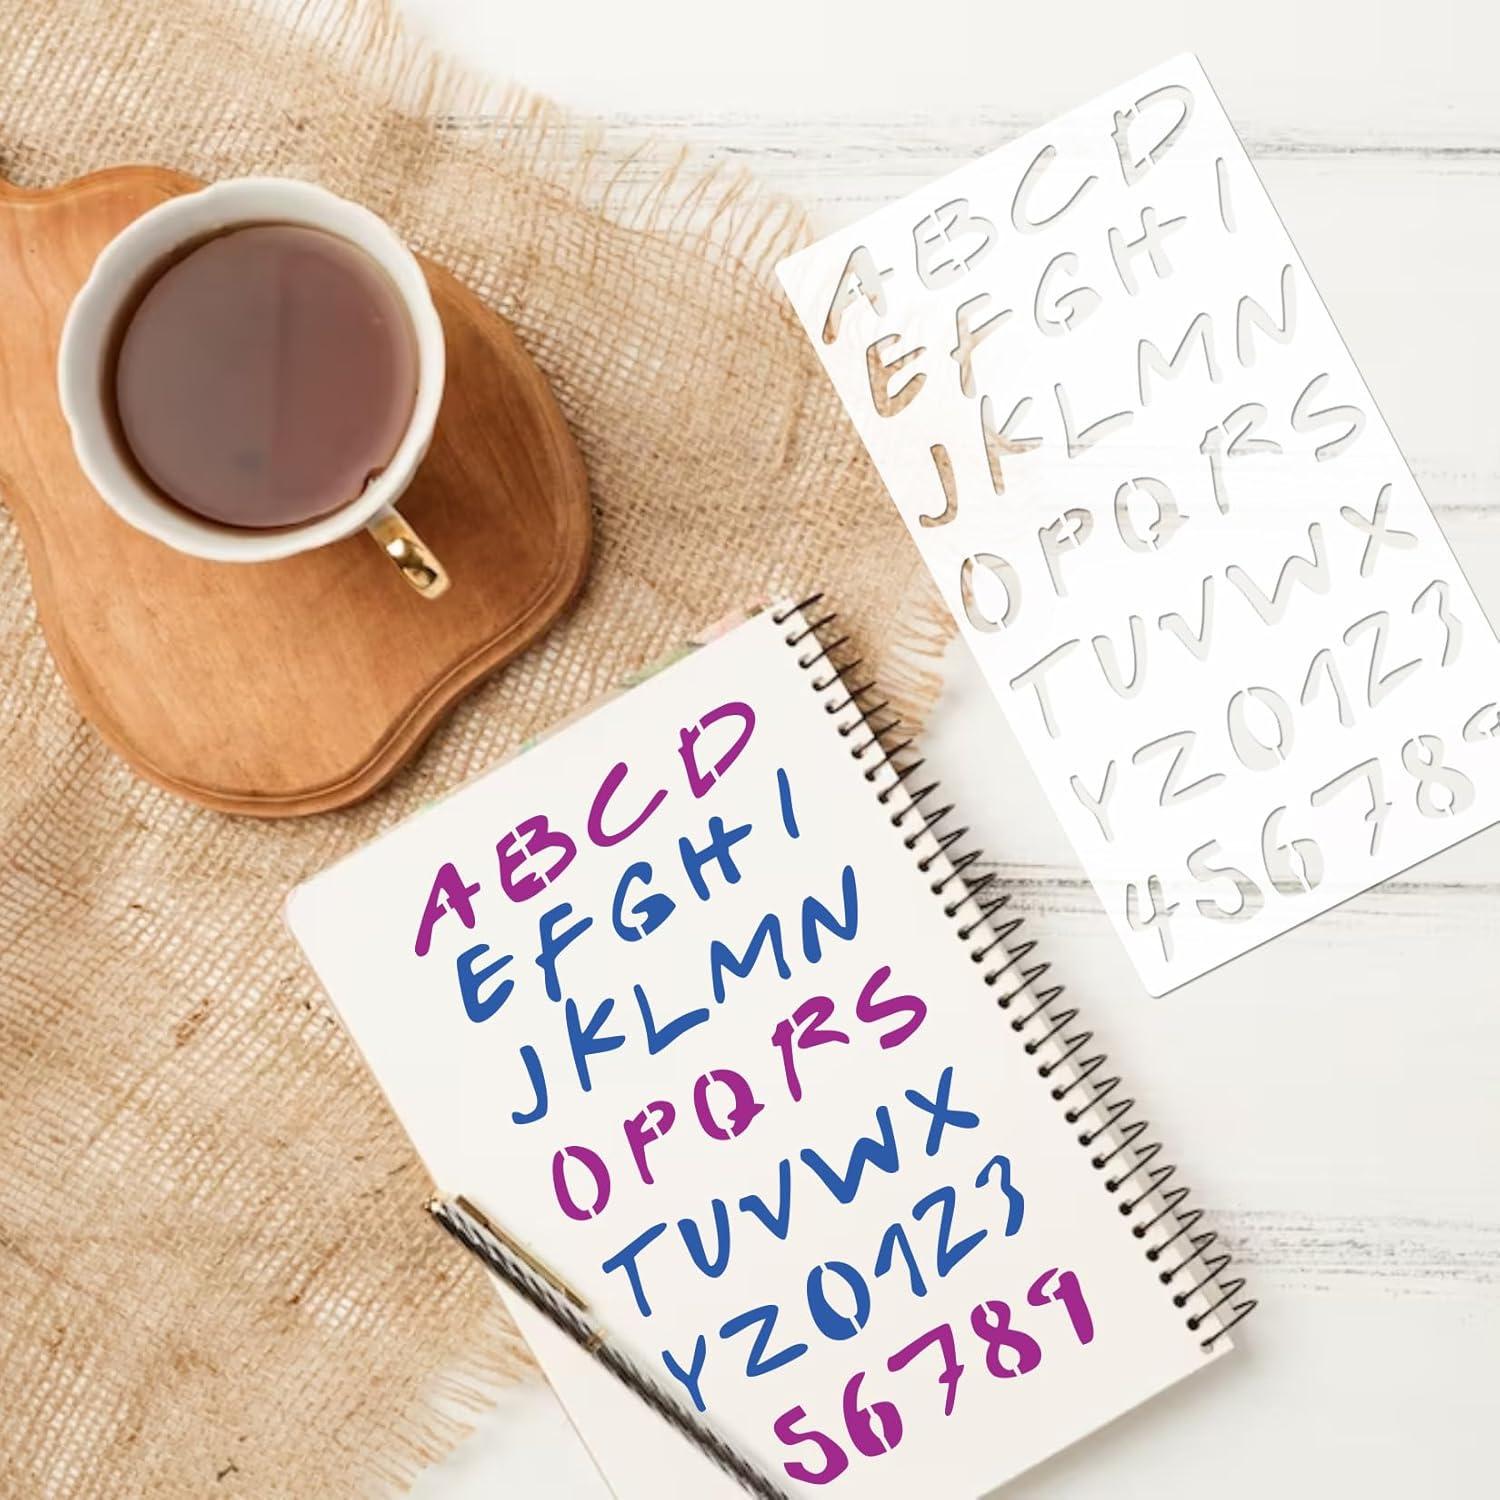 A B C D
E F G H I
J K L M N
O P Q R S
T U V W X
Y Z 0 1 2 3
4 5 6 7 8 9
A B C D
E F G H I
J K L M N
O P Q R S
T U V W X
Y Z 0 1 2 3
5 6 7 8 9